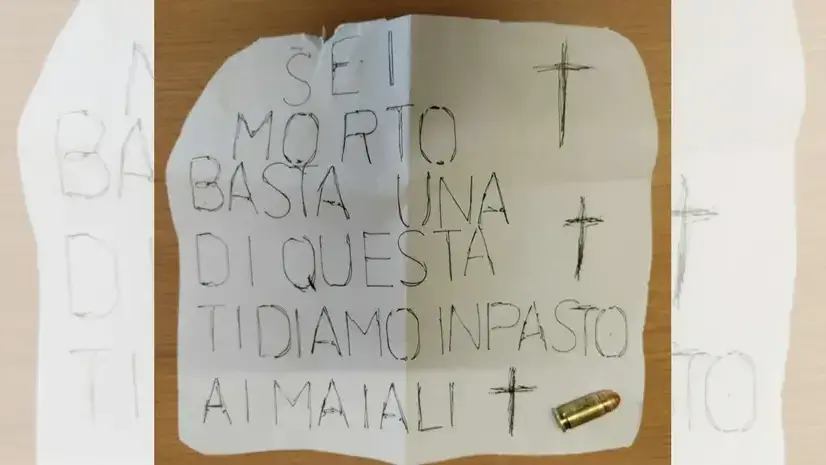 SEI
MORTO
BASTA UNA
DI QUESTA
TIDIAMO INPASTO
AI MAIALI